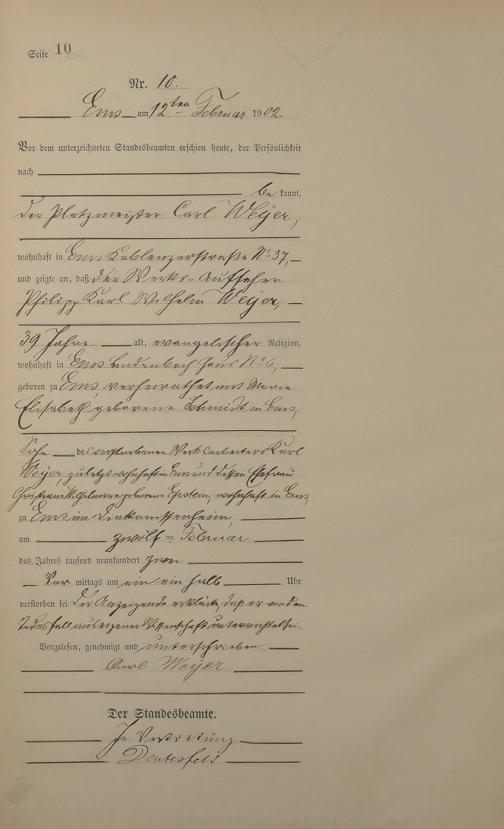 Seite 10
Nr. 10.
Ems am 12ten Februar 1902.
Vor dem unterzeichneten Standesbeamten erschien heute, der Persönlichkeit
nach
be kannt,
der Platzmeister Carl Weyer,
wohnhaft in Ems Koblenzerstraße No 37,
und zeigte an, daß der Werks-Aufseher
Philipp Karl Wilhelm Weyer,
39 Jahre alt, evangelischer Religion,
wohnhaft in Ems Haus No 6,
geboren zu Ems, verheirathet mit Marie
Elisabeth geborene Schmidt in Ems,
Sohn des verstorbenen Karl
Weyer, zuletzt wohnhaft in Ems und dessen Ehefrau
geborene Epstein, wohnhaft in Ems,
zu Ems im Diakonissenheim,
am zwölften Februar
des Jahres tausend neunhundert zwei
Vor mittags um ein ein halb Uhr
verstorben sei. Der Anzeigende erklärte, daß er von dem
Todesfall aus eigener Wissenschaft unterrichtet sei.
Vorgelesen, genehmigt und unterschrieben
Carl Weyer
Der Standesbeamte.
In Vertretung